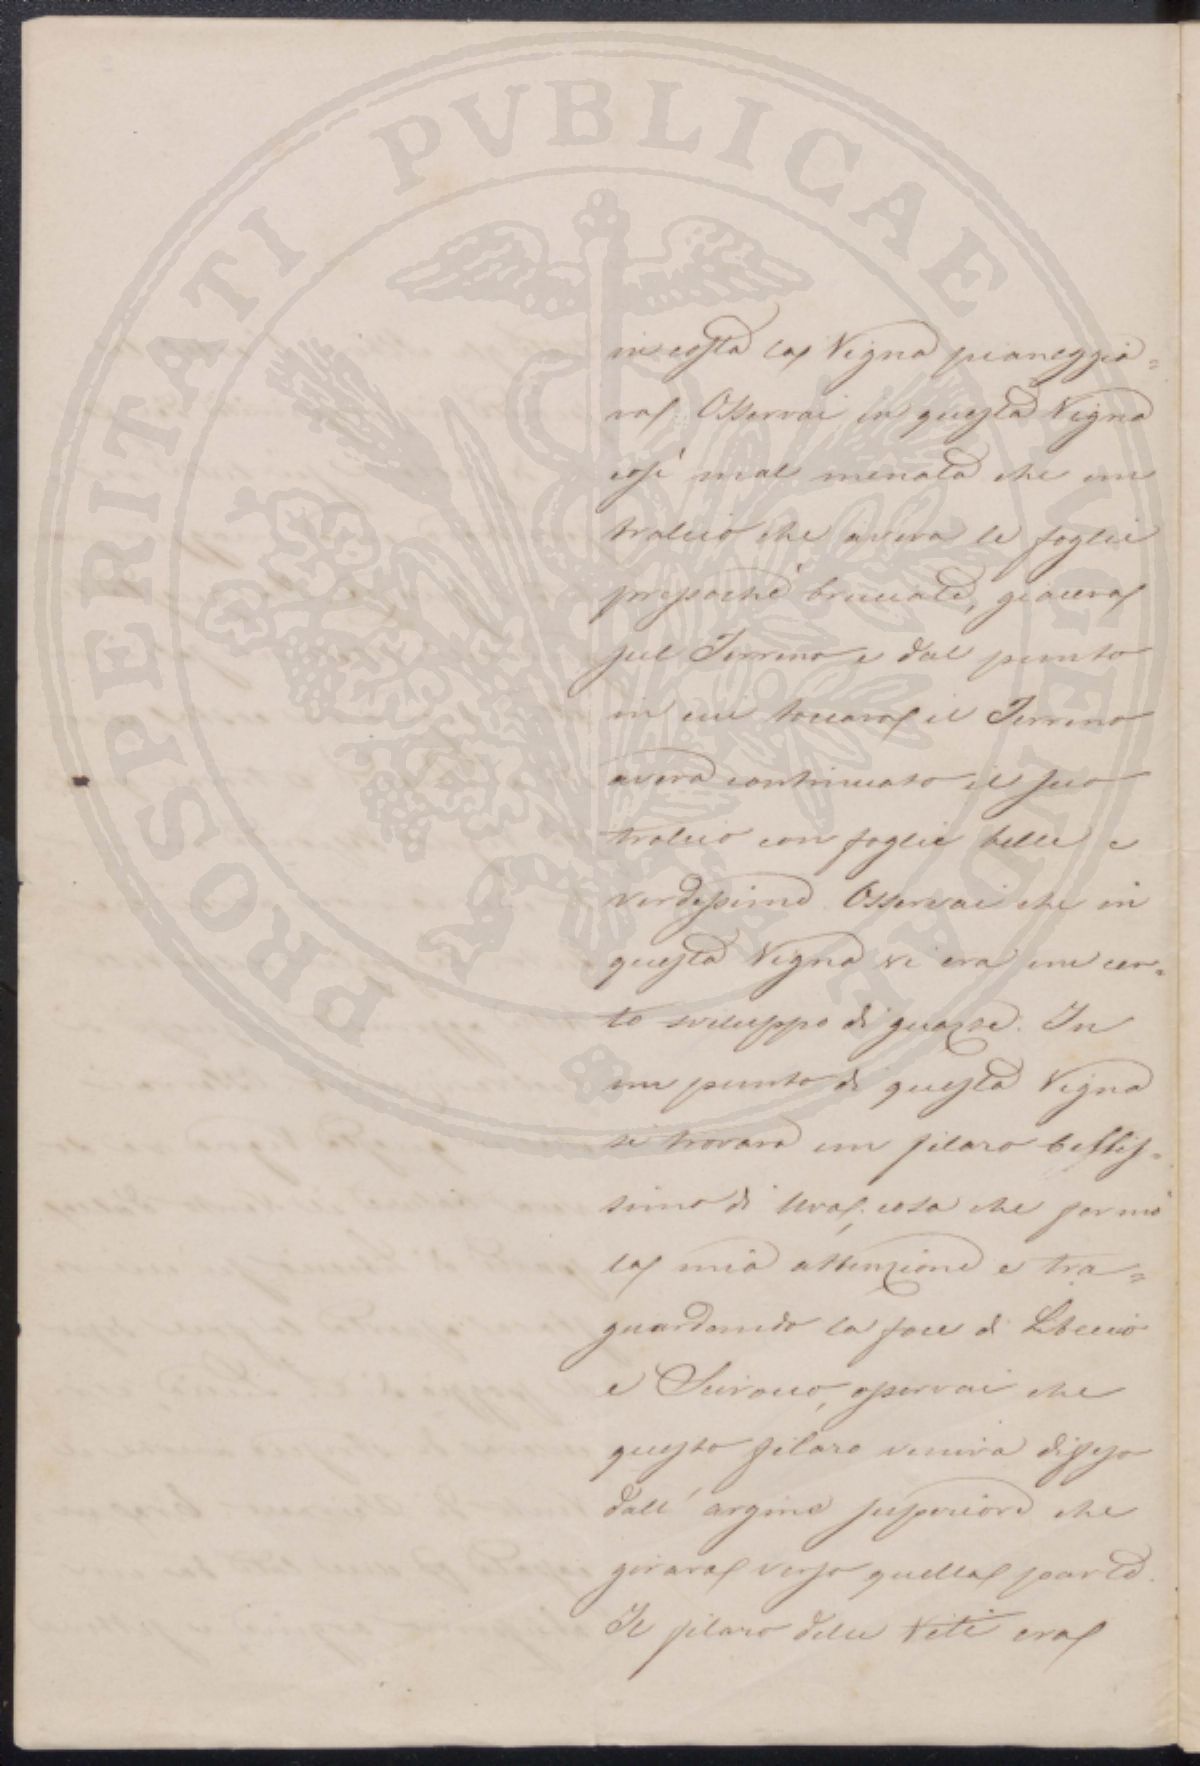 PROSPERITATI PUBLICAE AUGENDAE
in costa la Vigna pianeggia=
va. Osservai in questa Vigna
così mal menata che un
tralcio che aveva le foglie
pressochè bruciate, giaceva
sul Terreno e dal punto
in cui toccava il Terreno
aveva continuato il suo
tralcio con foglie belle e
verdissime. Osservai che in
questa Vigna vi era un cer=
to sviluppo di guazze. In
un punto di questa Vigna
si trovava un filaro bellis=
simo di Uva, cosa che formò
la mia attenzione e tra=
guardando la foce di Libeccio
e Scirocco, osservai che
questo filaro veniva difeso
dall' argine superiore che
girava verso quella parte.
Il filaro delle Viti era